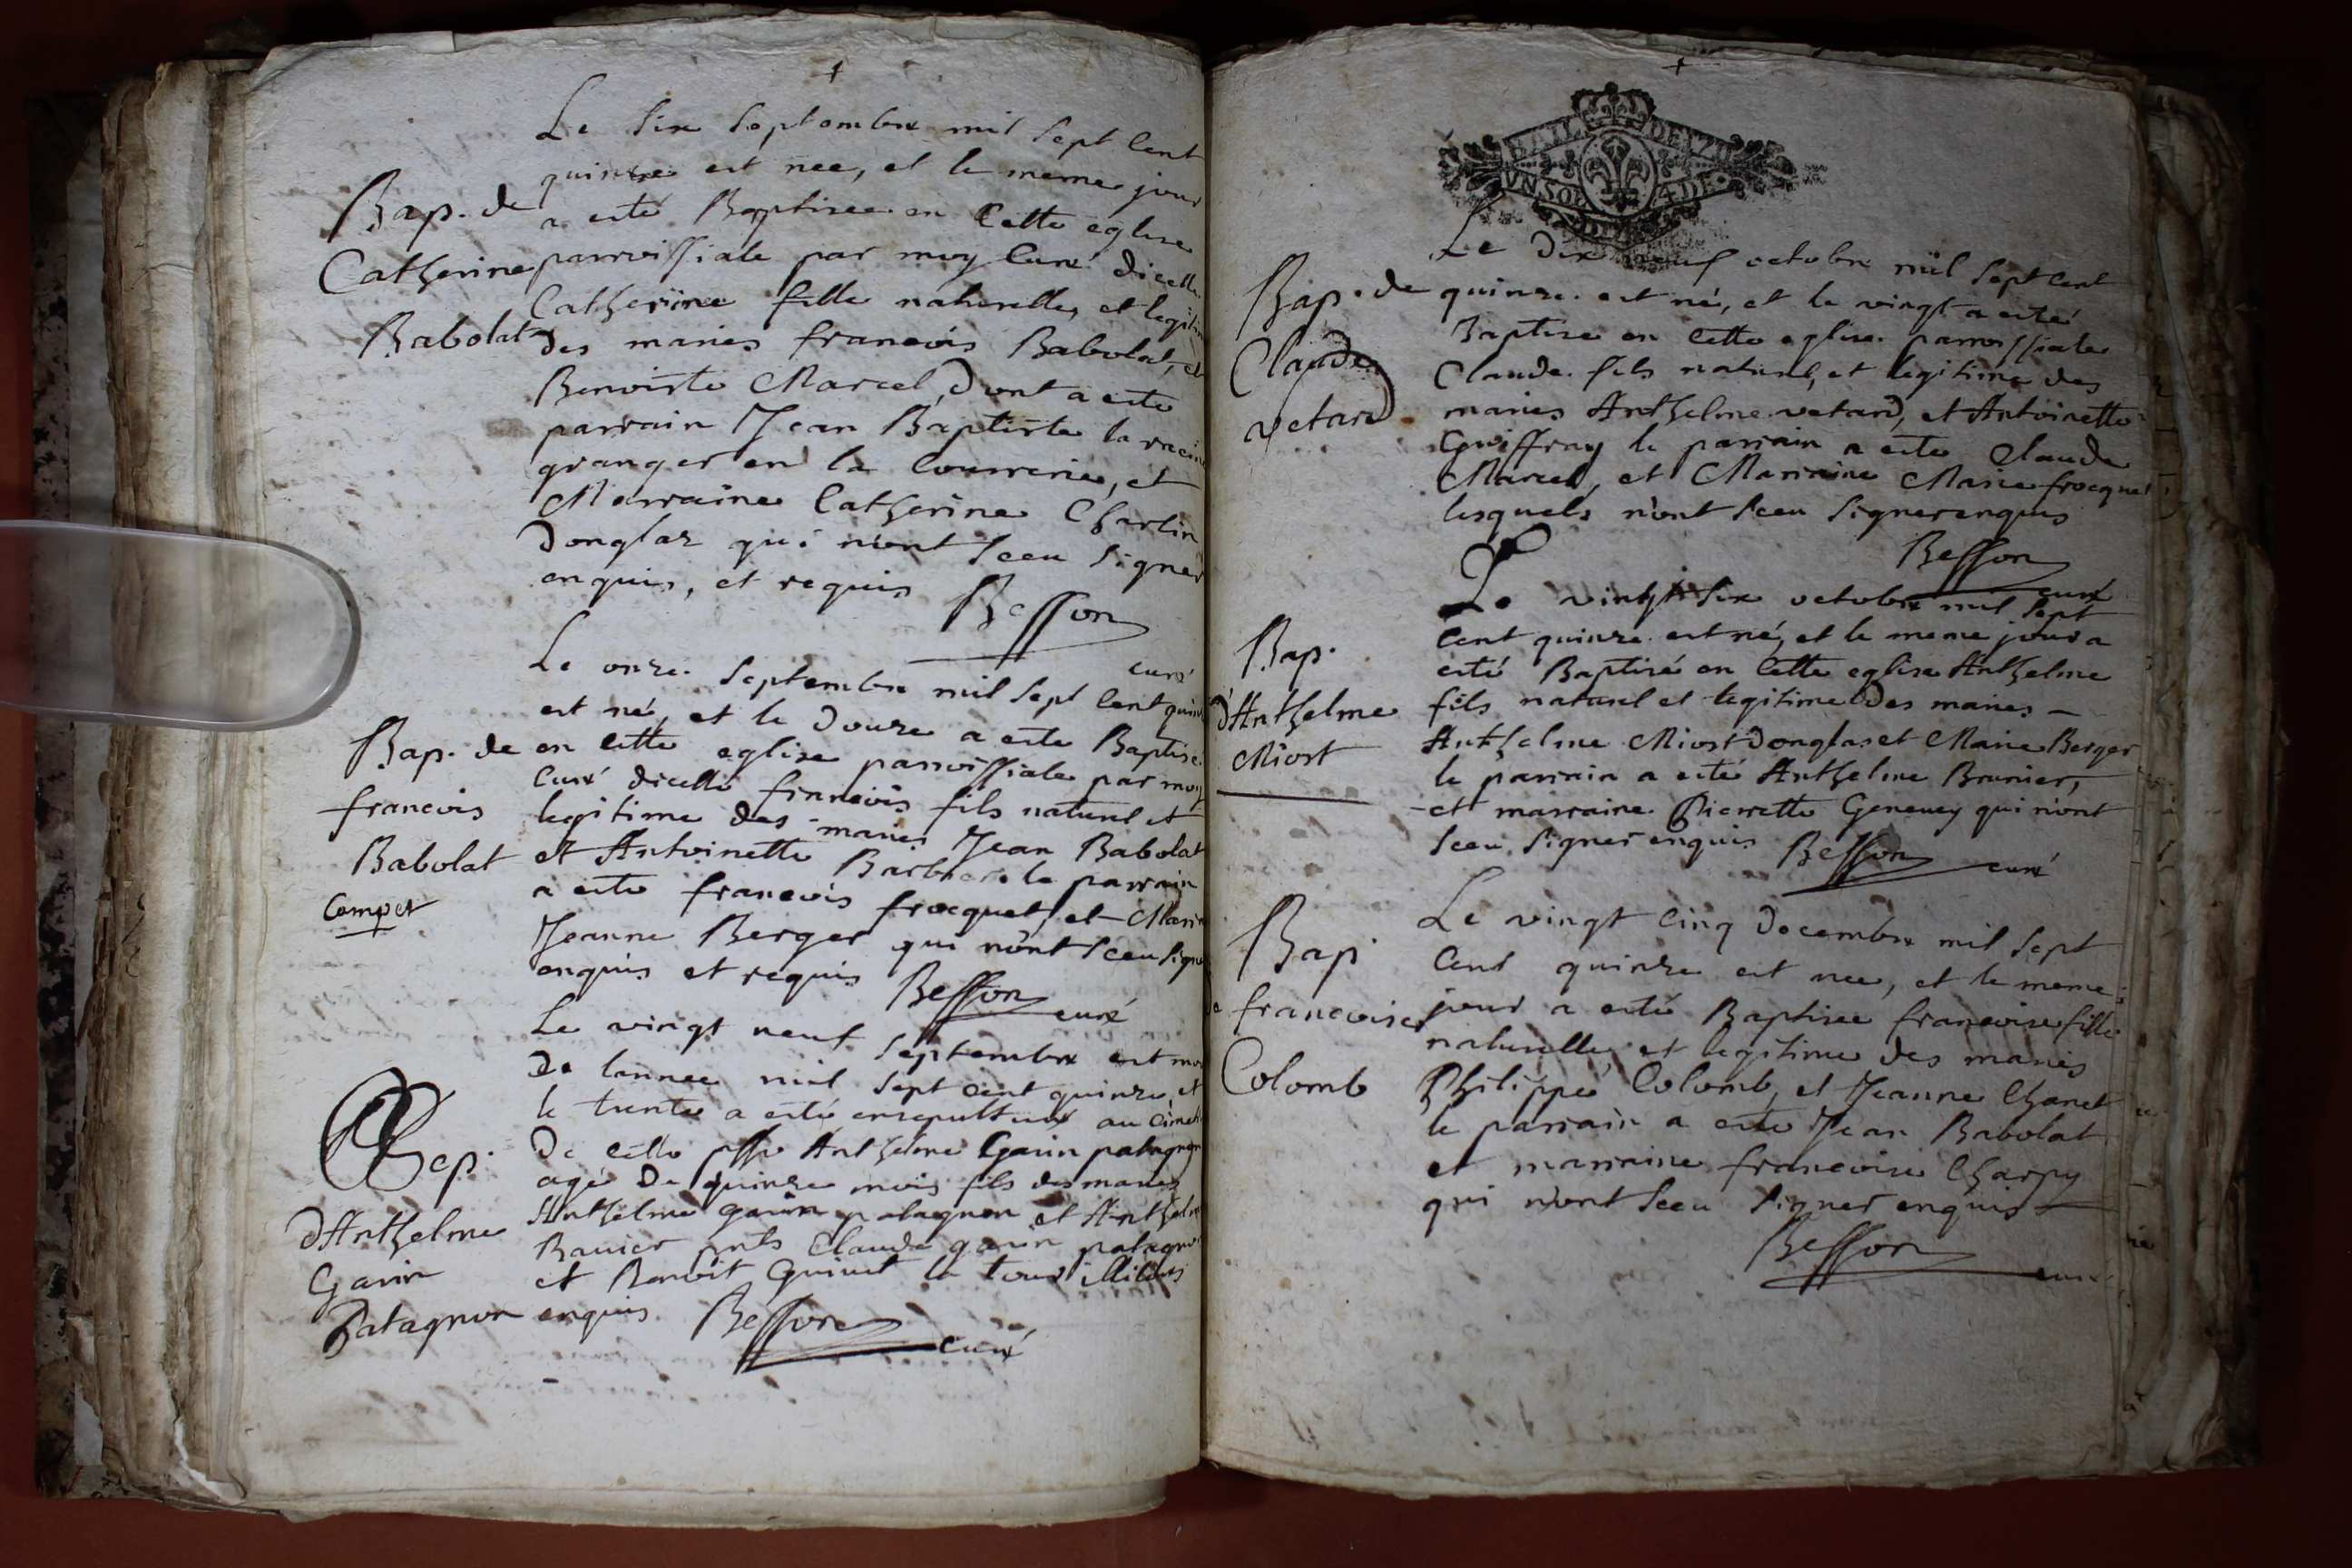 Le six septembre mil sept cent
quinze est nee, et le meme jour
a esté Baptisee en cette eglise
parroissiale par moy curé dicelle
Catherine fille naturelle, et legitim
des maries francois Babolat, et
Benoiste Marcel, dont a esté
parrain Jean Baptiste la racine
granger en la Courrerie, et
Marraine Catherine Charlin
Donglas qui n'ont sceu signer
enquis, et requis
Besson
curé
Bap. de
Catherine
Babolat
Le onze septembre mil sept cent quinz
est né, et le Douze a esté Baptise
en cette eglise parroissiale par moy
curé dicelle francois fils naturel et
legitime des maries Jean Babolat
et Antoinette Barbier le parrain
a esté francois frocquet, et Marr
Jeanne Berger qui n'ont sceu signe
enquis et requis Besson curé
Bap. de
francois
Babolat
Compet
Le vingt neuf septembre est mo
De lannee mil sept cent quinze, et
le trente a esté ensepulturé au cimeti
De cette psse Anthelme Garin patagnon
agé De quinze mois fils des maries
Anthelme garin patagnon et Anthelm
Bavier pnts Claude garin patagno
et Benoit Guinet la tour illiteres
enquis. Besson curé
Sep.
d'Anthelme
Garin
Patagnon
BAIL DEUZE
UN SOL 4 DE.
Le Dix neuf octobre mil sept cent
quinze est né, et le vingt a esté
Baptise en cette eglise parroissiale
Claude fils naturel, et legitime des
maries Anthelme vetard, et Antoinette
Guiffray le parrain a esté Claude
Marcel, et Marraine Marie frocquet
lesquels n'ont sceu signer enquis
Besson
curé
Bap. de
Claude
vetard
Le vingt six octobre mil sept
cent quinze est né, et le meme jour a
esté Baptisé en cette eglise Anthelme
fils naturel et legitime Des maries -
Anthelme Miost Donglas et Marie Berger
le parrain a esté Anthelme Brunier,
- et marraine Pierrette Genevey qui n'ont
sceu signer enquis Besson curé
Bap.
d'Anthelme
Miost
Le vingt cinq Decembre mil sept
Cent quinze est nee, et le meme
jour a esté Baptisee francoise fille
naturelle, et legitime des maries
Philippe Colomb, et Jeanne Chanet
le parrain a esté Jean Babolat
et marraine francoise Charpy
qui n'ont sceu signer enquis -
Besson
curé
Bap.
de francoise
Colomb